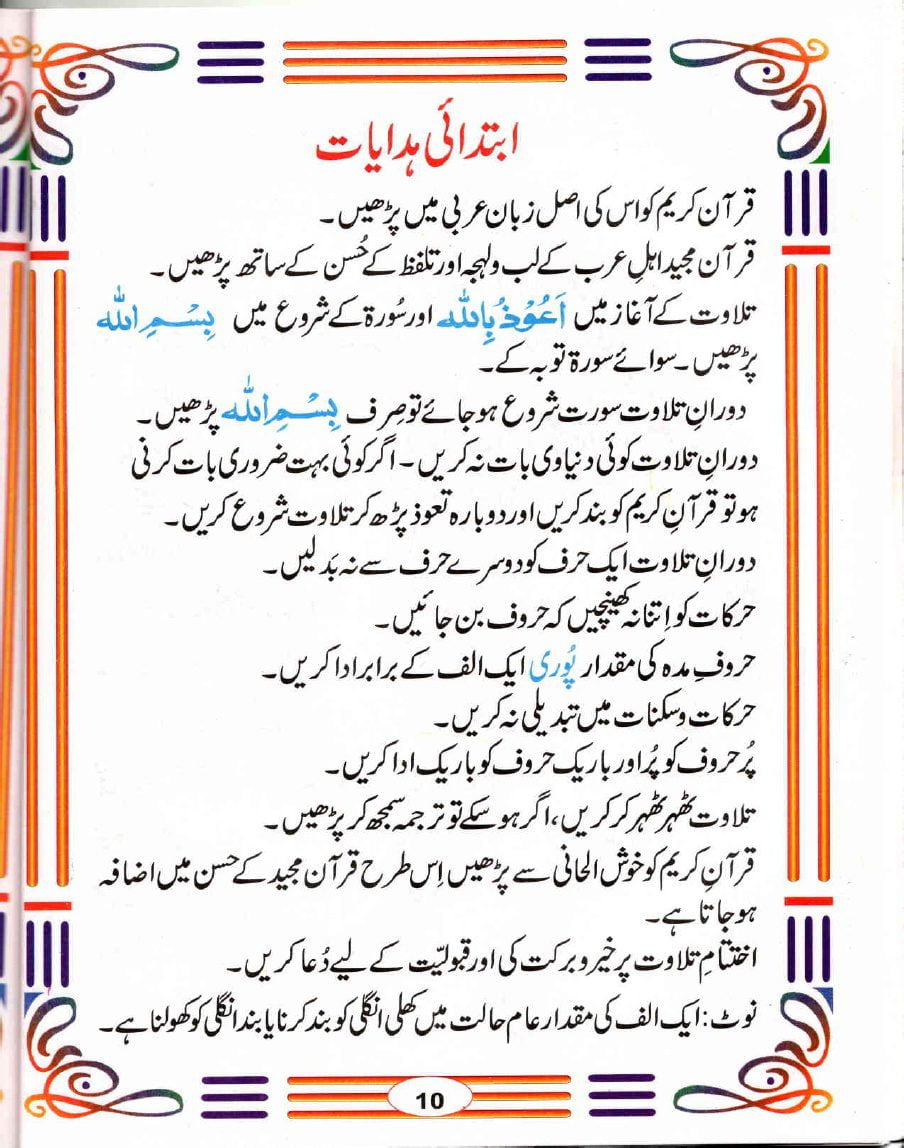 ابتدائی ہدایات
قرآن کریم کو اس کی اصل زبان عربی میں پڑھیں۔
قرآن مجید اہلِ عرب کے لب ولہجہ اور تلفظ کے حُسن کے ساتھ پڑھیں۔
تلاوت کے آغاز میں اَعُوْذُ بِاللّٰه اور سُورۃ کے شروع میں بِسْمِ اللّٰه
پڑھیں۔ سوائے سورۃ توبہ کے۔
دورانِ تلاوت سورت شروع ہو جائے تو صِرف بِسْمِ اللّٰه پڑھیں۔
دورانِ تلاوت کوئی دنیاوی بات نہ کریں۔ اگر کوئی بہت ضروری بات کرنی
ہو تو قرآنِ کریم کو بند کریں اور دوبارہ تعوذ پڑھ کر تلاوت شروع کریں۔
دورانِ تلاوت ایک حرف کو دوسرے حرف سے نہ بَدلیں۔
حرکات کو اِتنا نہ کھینچیں کہ حروف بن جائیں۔
حروفِ مدہ کی مقدار پُوری ایک الف کے برابر ادا کریں۔
حرکات وسکنات میں تبدیلی نہ کریں۔
پُر حروف کو پُر اور باریک حروف کو باریک ادا کریں۔
تلاوت ٹھہر ٹھہر کر کریں، اگر ہو سکے تو ترجمہ سمجھ کر پڑھیں۔
قرآنِ کریم کو خوش الحانی سے پڑھیں اِس طرح قرآن مجید کے حسن میں اضافہ
ہو جاتا ہے۔
اختتامِ تلاوت پر خیر و برکت کی اور قبولیّت کے لیے دُعا کریں۔
نوٹ: ایک الف کی مقدار عام حالت میں کھلی انگلی کو بند کرنا یا بند انگلی کو کھولنا ہے۔
10